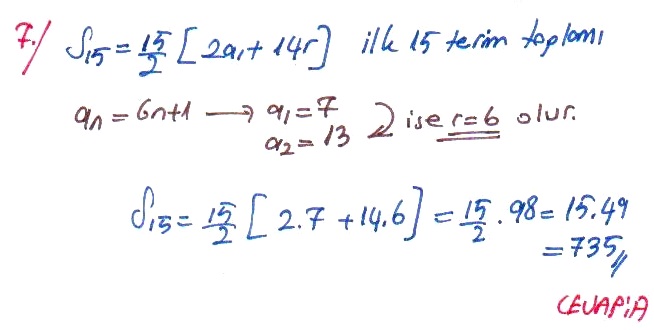 7./ S₁₅ = 15/2 [2a₁ + 14r] ilk 15 terim toplamı
aₙ = 6n+1 → a₁ = 7
a₂ = 13 ise r=6 olur.
S₁₅ = 15/2 [2.7 + 14.6] = 15/2 . 98 = 15.49
= 735//
CEVAP:A